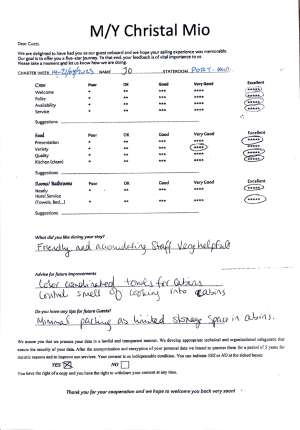 M/Y Christal Mio
Dear Guest,
We are delighted to have had you as our guest onboard and we hope your sailing experience was memorable.
Our goal is to offer you a five-star journey. To that end, your feedback is of vital importance to us.
Please take a moment and let us know how we are doing.
CHARTER WEEK NAME JO STATEROOM PORT-
Crew Poor OK Good Very Good Excellent
Welcome * ** *** **** *****
Polite * ** *** **** *****
Availability * ** *** **** *****
Service * ** *** **** *****
Suggestions:
Food Poor OK Good Very Good Excellent
Presentation * ** *** **** *****
Variety * ** *** **** *****
Quality * ** *** **** *****
Kitchen (clean) * ** *** **** *****
Suggestions:
Rooms/ Bathrooms Poor OK Good Very Good Excellent
* ** *** **** *****
Hotel Service
(Towels, Bed...) * ** *** **** *****
Suggestions:
What did you like during your stay?
Friendly and Staff Very helpful
Advice for future improvements
Color coordinated towels for cabins
Control smell of cooking into cabins
Do you have any tips for future Guests?
Minimal packing as limited storage space in cabins.
We assure you that we process your data in a lawful and transparent manner. We develop appropriate technical and organisational safeguards that
ensure the security of your data. After the anonymization and encryption of your personal data we intend to process them for a period of 5 years for
statistic reasons and to improve our services. Your consent is an indispensable condition. You can indicate YES or NO at the ticked boxes:
YES NO
You have the right of a copy and you have the right to withdraw your consent at any time.
Thank you for your cooperation and we hope to welcome you back very soon!